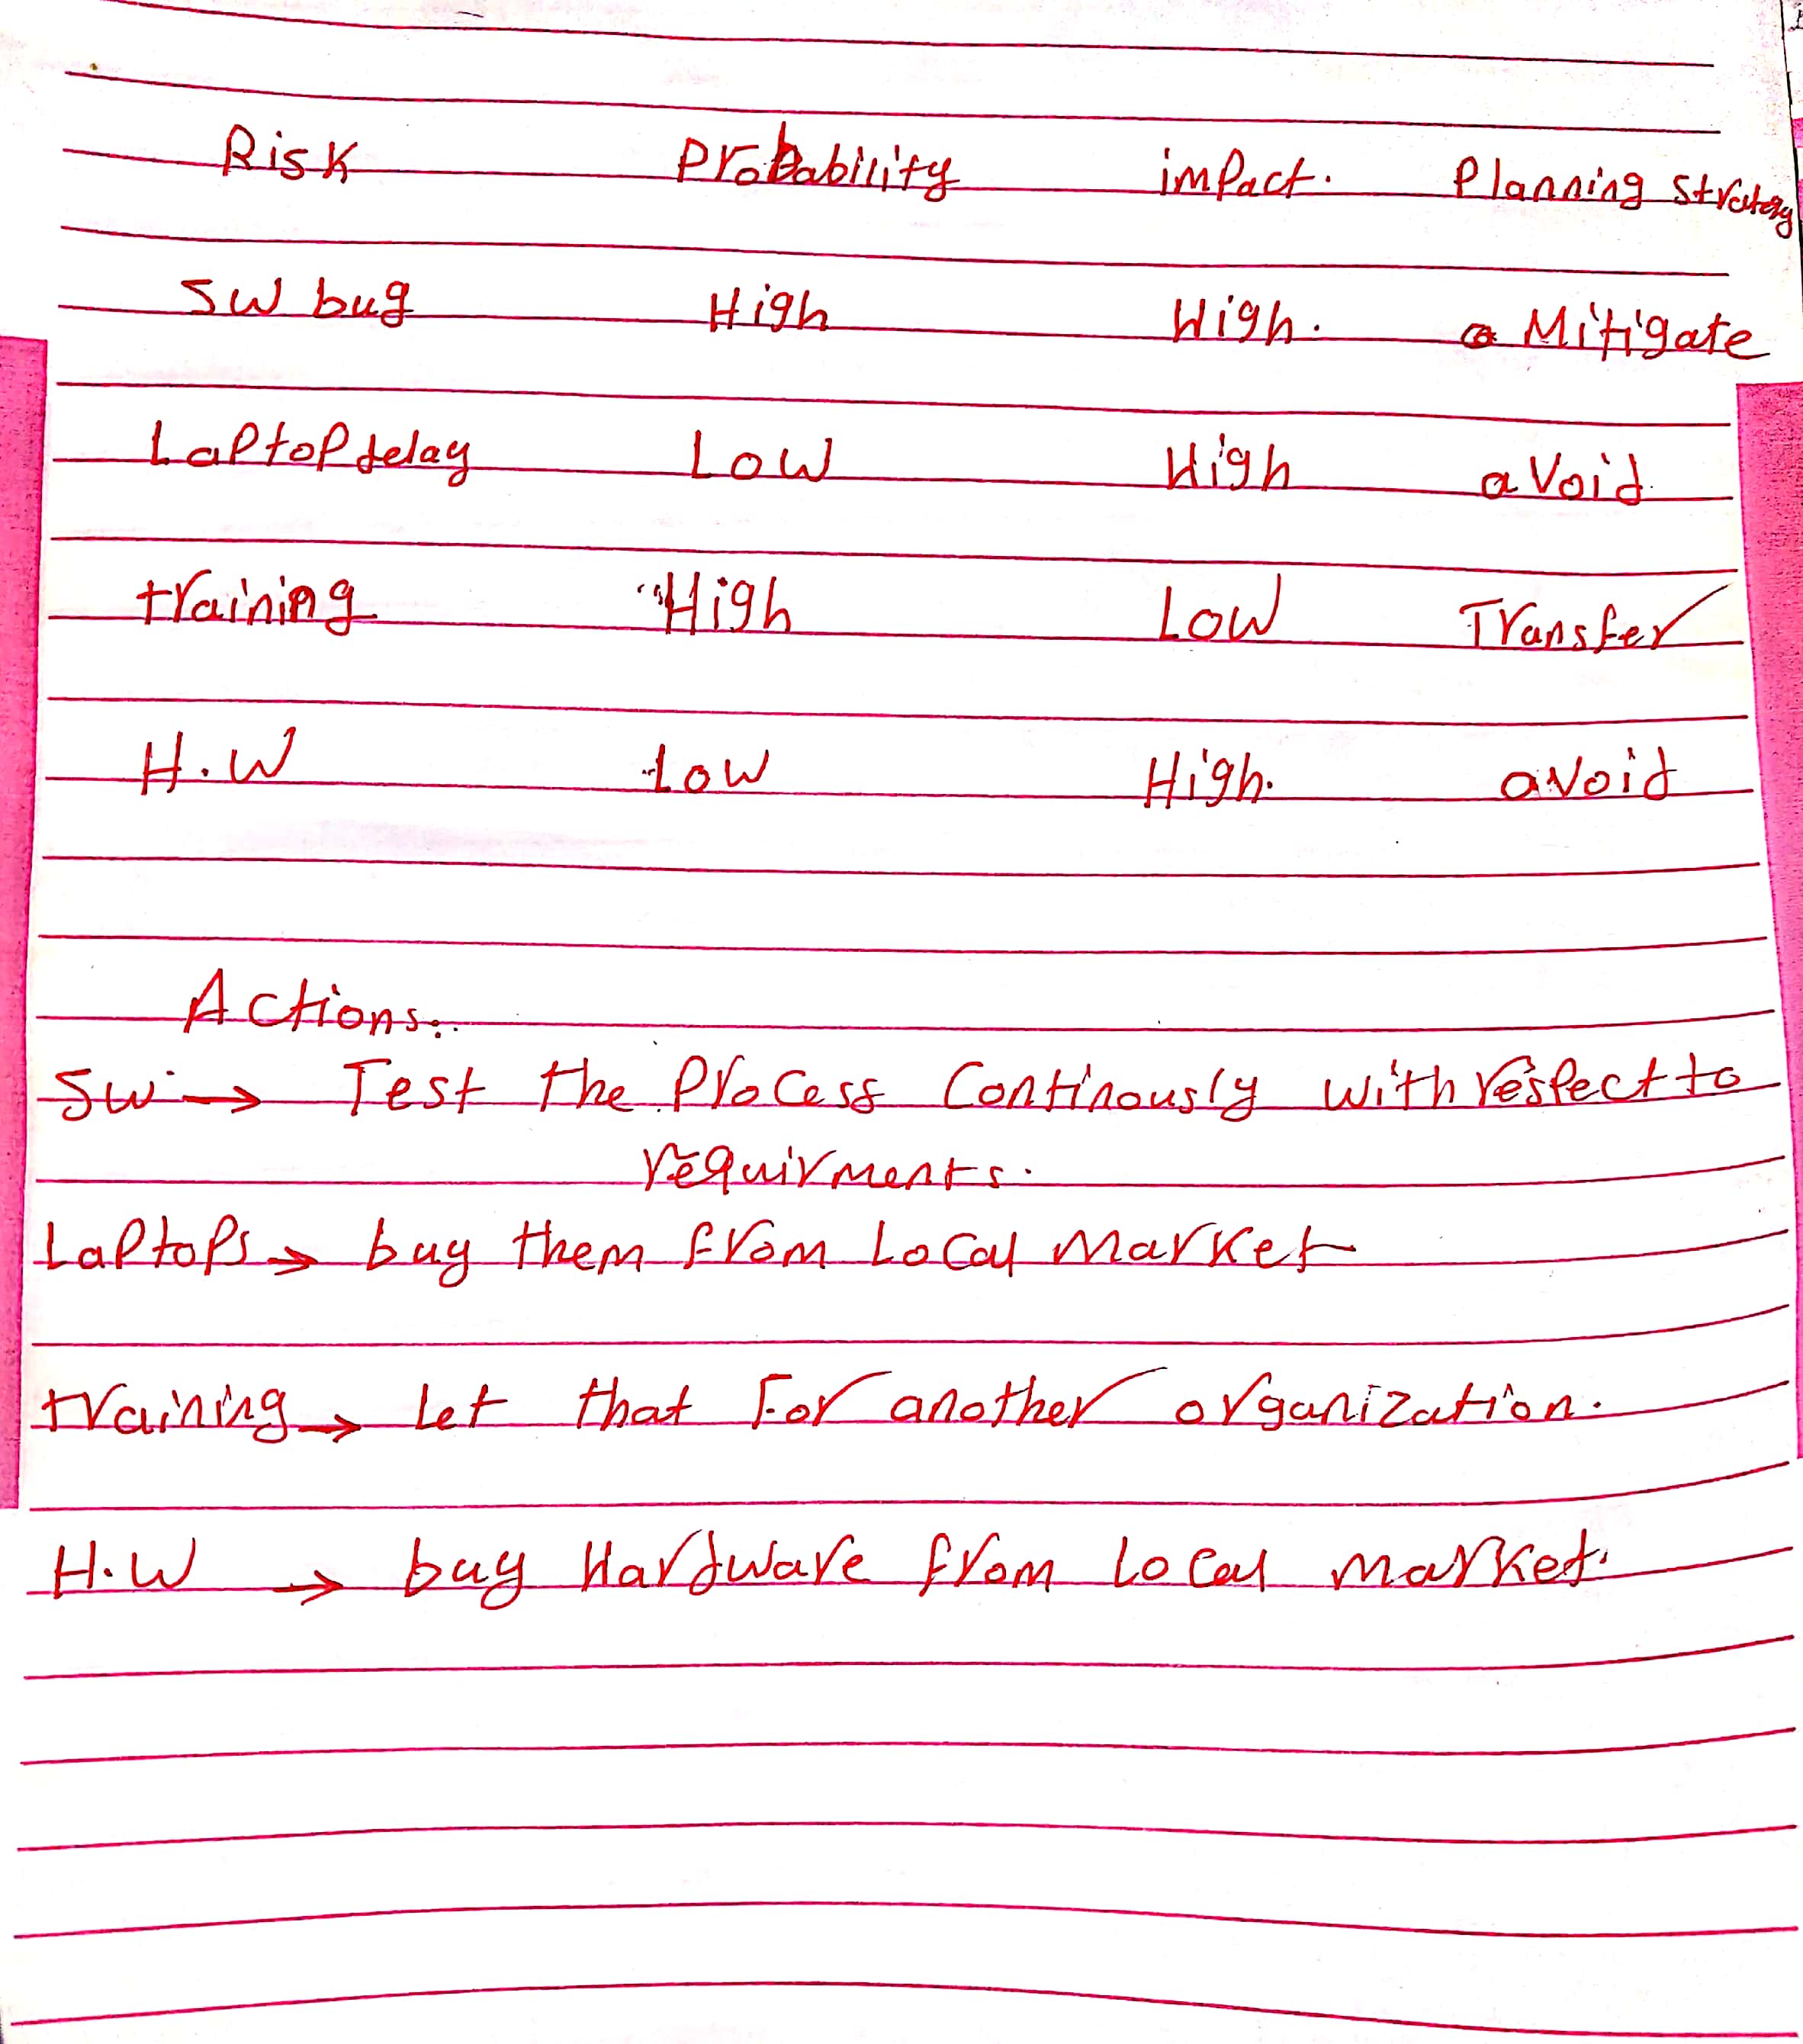 Risk Probability impact. Planning strategy
SW bug High High. Mitigate
Laptop delay Low High avoid
training High Low Transfer
H.W Low High. avoid
Actions:
SW → Test the Process Continously with respect to
requirments.
Laptops → buy them from Local market
training → Let that For another organization.
H.W → buy Hardware from Local market.